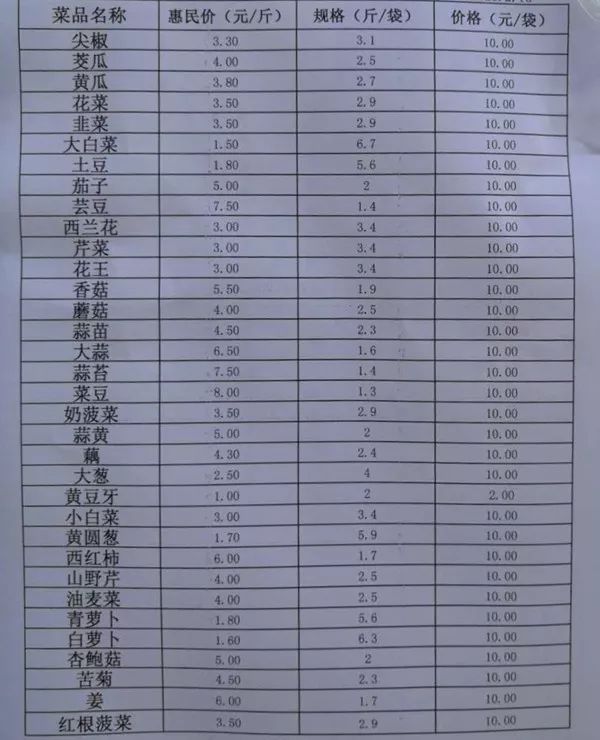 菜品名称 惠民价（元/斤） 规格（斤/袋） 价格（元/袋）
尖椒 3.30 3.1 10.00
茭瓜 4.00 2.5 10.00
黄瓜 3.80 2.7 10.00
花菜 3.50 2.9 10.00
韭菜 3.50 2.9 10.00
大白菜 1.50 6.7 10.00
土豆 1.80 5.6 10.00
茄子 5.00 2 10.00
芸豆 7.50 1.4 10.00
西兰花 3.00 3.4 10.00
芹菜 3.00 3.4 10.00
花王 3.00 3.4 10.00
香菇 5.50 1.9 10.00
蘑菇 4.00 2.5 10.00
蒜苗 4.50 2.3 10.00
大蒜 6.50 1.6 10.00
蒜苔 7.50 1.4 10.00
菜豆 8.00 1.3 10.00
奶菠菜 3.50 2.9 10.00
蒜黄 5.00 2 10.00
藕 4.30 2.4 10.00
大葱 2.50 4 10.00
黄豆牙 1.00 2 2.00
小白菜 3.00 3.4 10.00
黄圆葱 1.70 5.9 10.00
西红柿 6.00 1.7 10.00
山野芹 4.00 2.5 10.00
油麦菜 4.00 2.5 10.00
青萝卜 1.80 5.6 10.00
白萝卜 1.60 6.3 10.00
杏鲍菇 5.00 2 10.00
苦菊 4.50 2.3 10.00
姜 6.00 1.7 10.00
红根菠菜 3.50 2.9 10.00